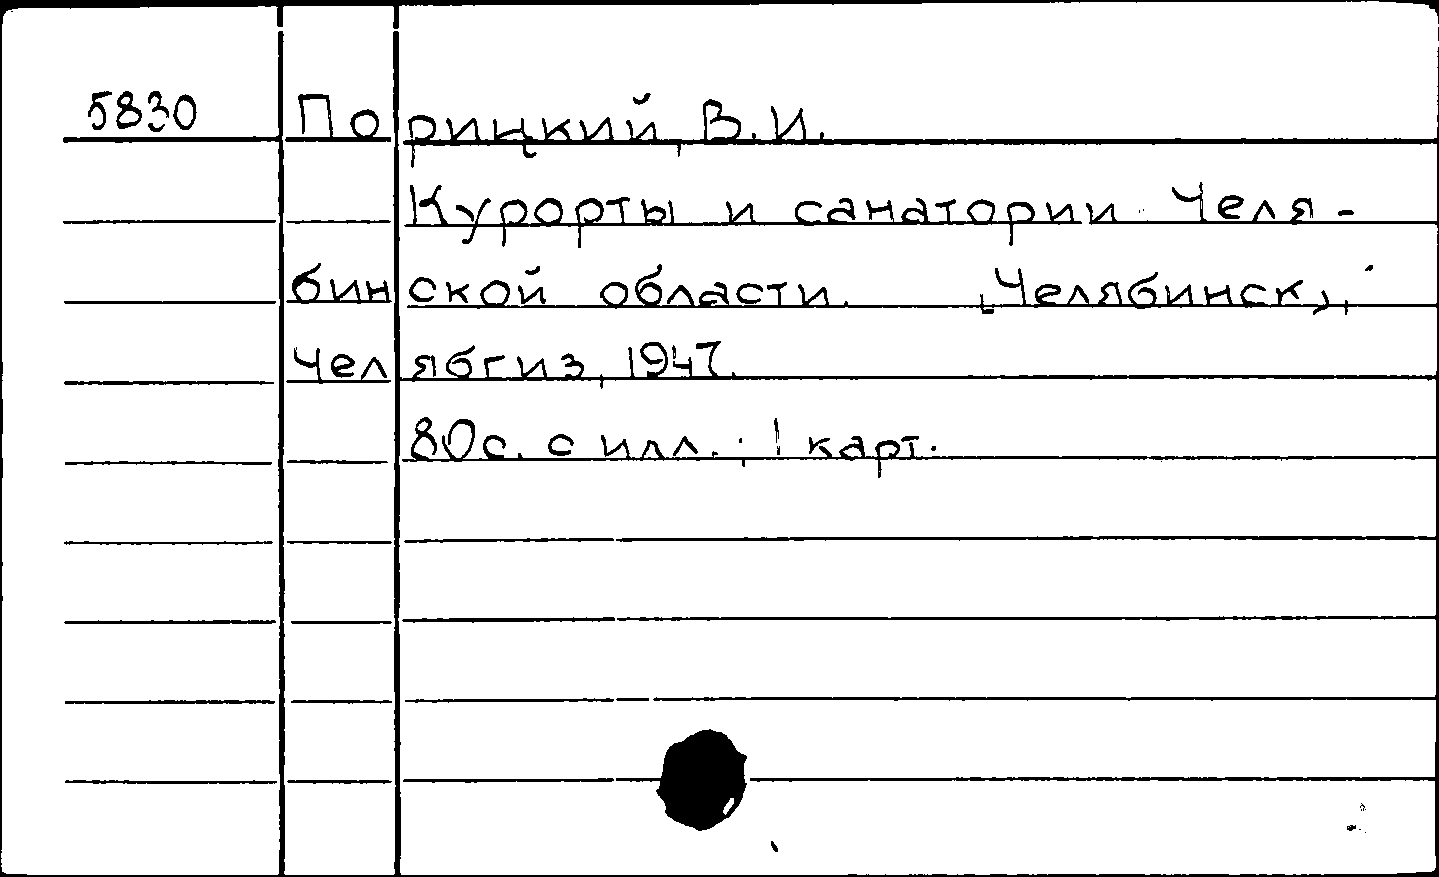 5830 Порицкий, В.И.
Курорты и санатории Челя-
бинской области. [Челябинск],
Челябгиз, 1947.
80с. с илл.; 1 карт.